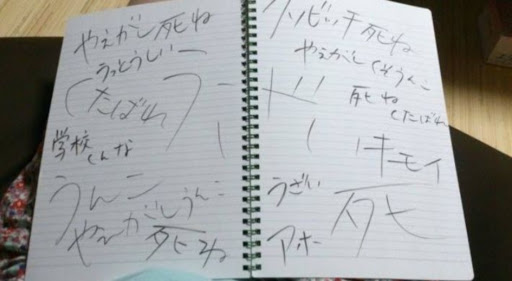 やえがし死ね
うっとうしいー
くたばれ
学校くんな
うんこ
やえがしうんこ
死ね
クソビッチ死ね
やえがしくそうんこ
死ね
くたばれ
キモイ
うざい
死
アホー